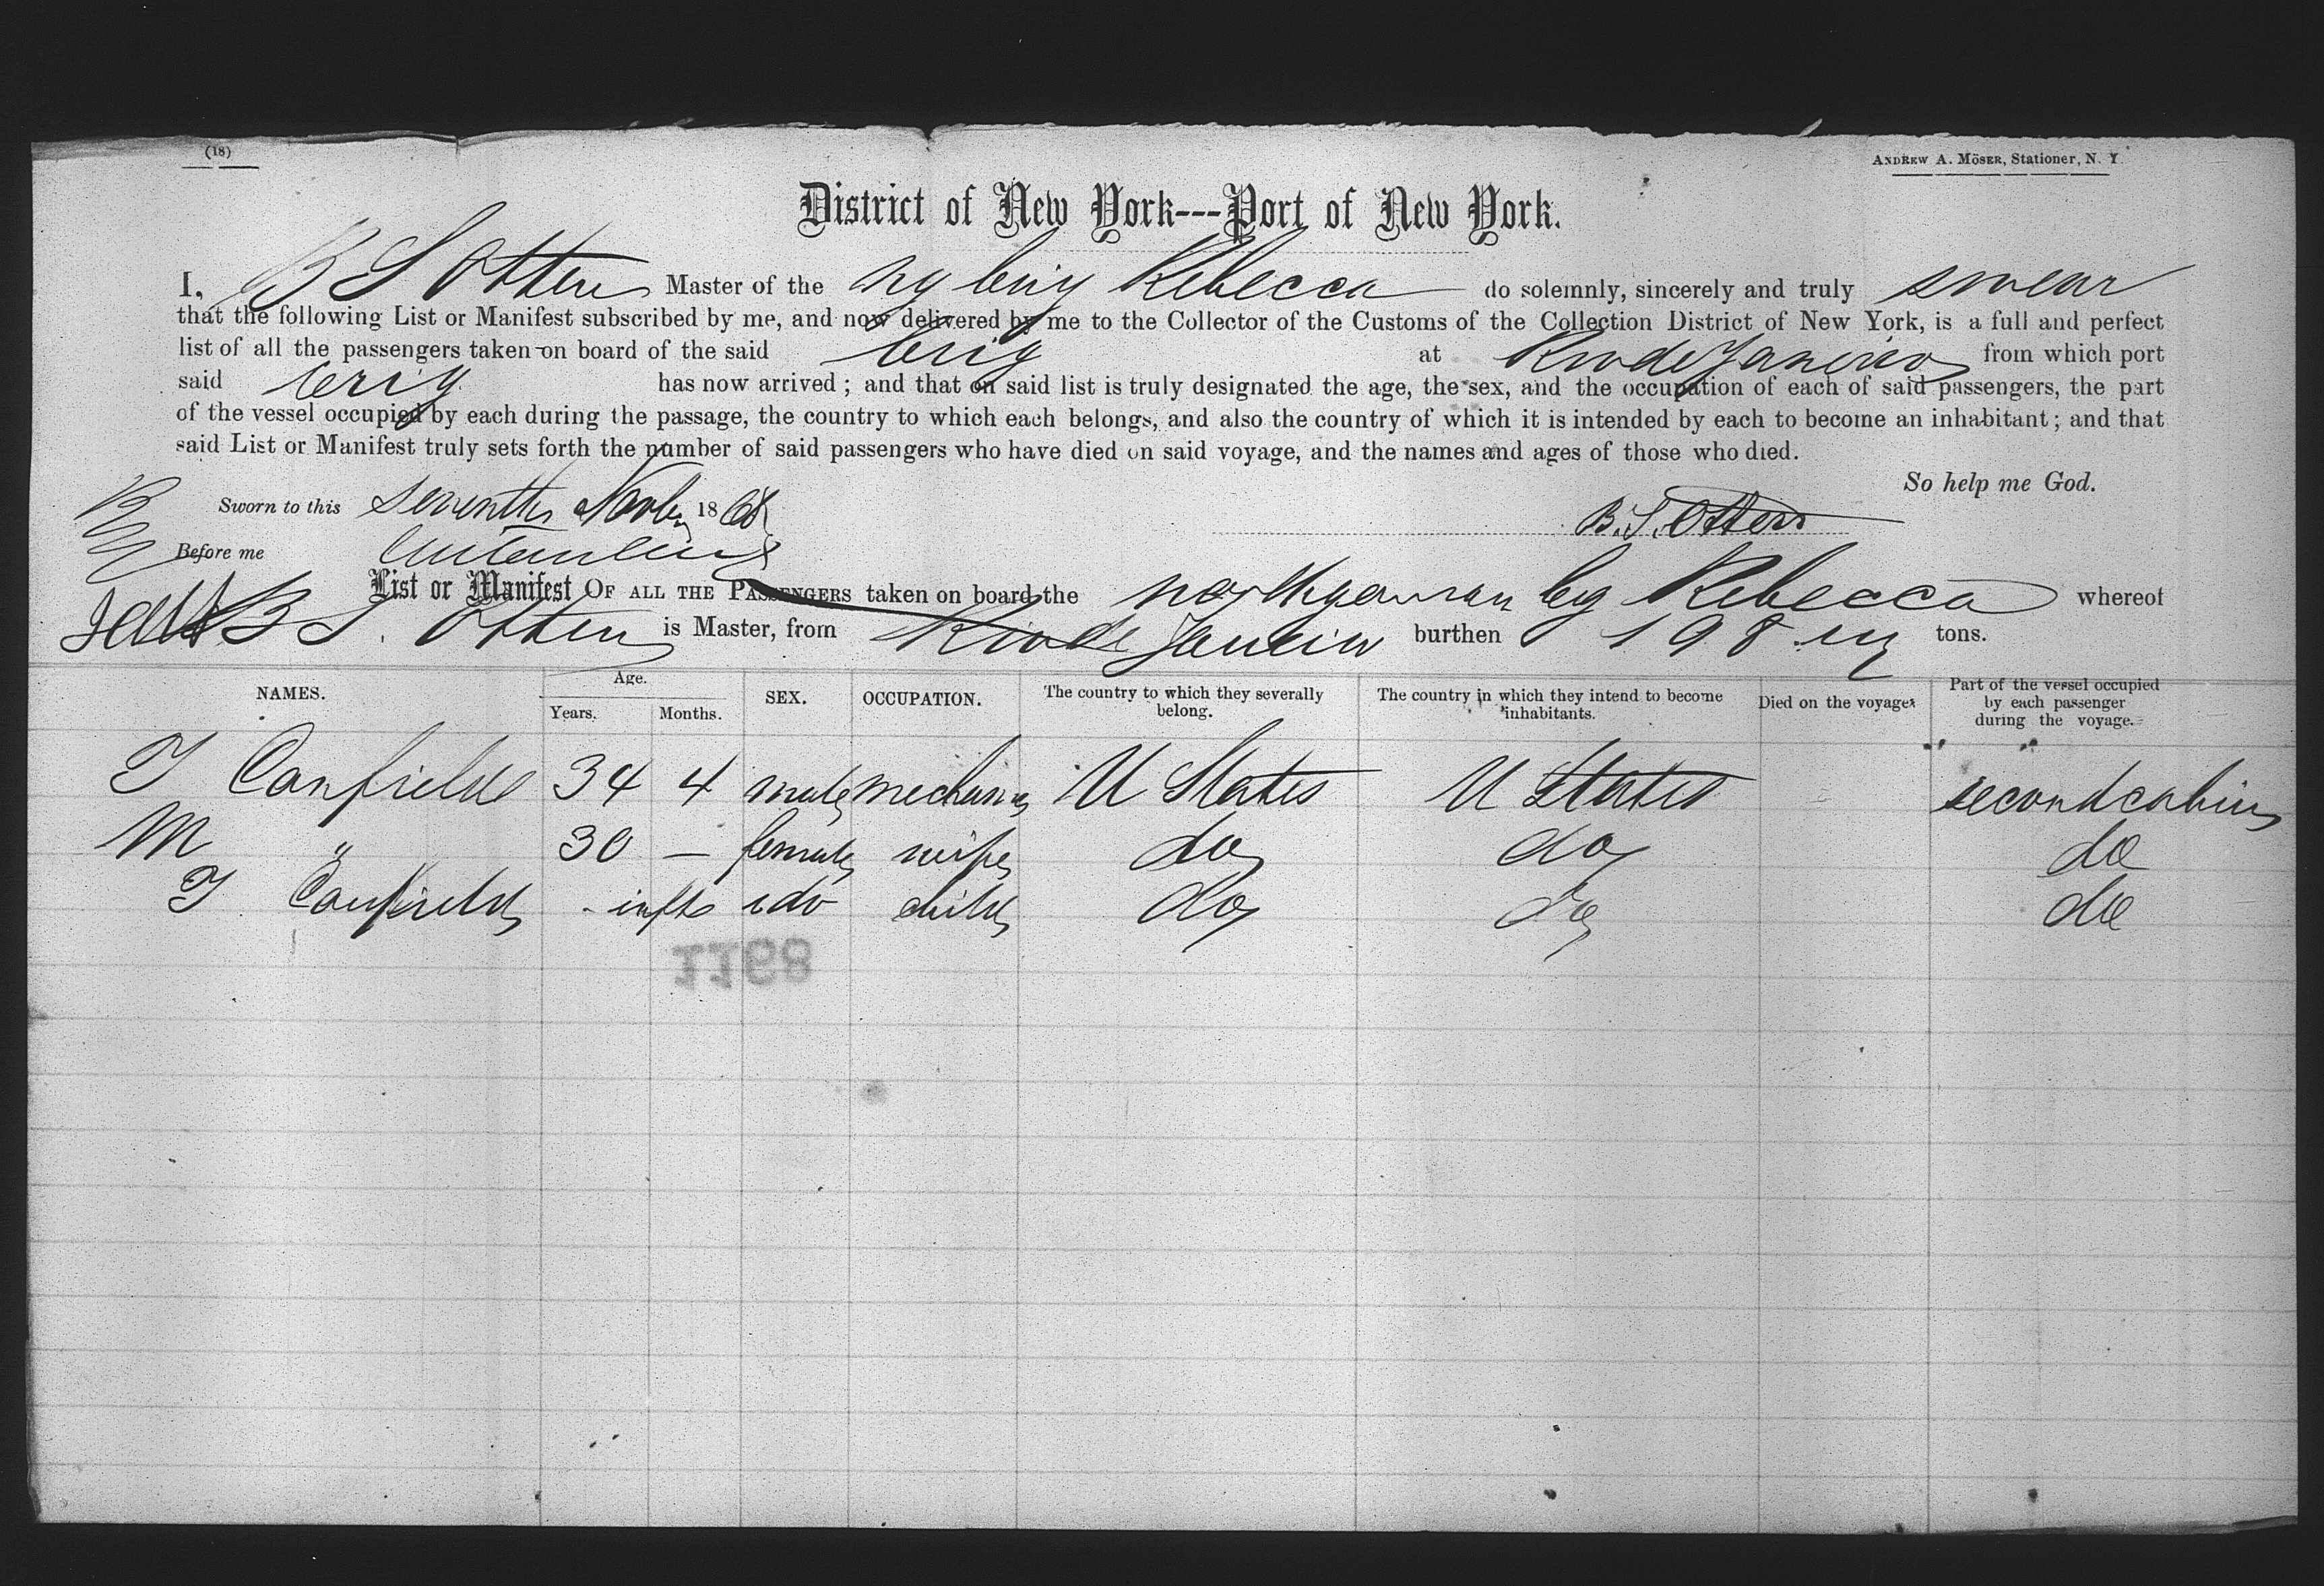 (18)
ANDREW A. MÖSER, Stationer, N. Y.
District of New York---Port of New York.
I, B S Otten Master of the brig Rebecca do solemnly, sincerely and truly swear
that the following List or Manifest subscribed by me, and now delivered by me to the Collector of the Customs of the Collection District of New York, is a full and perfect
list of all the passengers taken on board of the said brig at Rio de Janeiro from which port
said brig has now arrived; and that on said list is truly designated the age, the sex, and the occupation of each of said passengers, the part
of the vessel occupied by each during the passage, the country to which each belongs, and also the country of which it is intended by each to become an inhabitant; and that
said List or Manifest truly sets forth the number of said passengers who have died on said voyage, and the names and ages of those who died.
So help me God.
Sworn to this seventh 1868
B. S. Otten
Before me
List or Manifest OF ALL THE PASSENGERS taken on board the Rebecca whereof
B S. Otten is Master, from Rio de Janeiro burthen 198 tons.
NAMES. Age. Years. Months. SEX. OCCUPATION. The country to which they severally belong. The country in which they intend to become inhabitants. Died on the voyage. Part of the vessel occupied by each passenger during the voyage.
T Canfield 34 4 male mechanic U States U States second cabin
M " 30 — female wife do do do
T Canfield do child do do do
1168